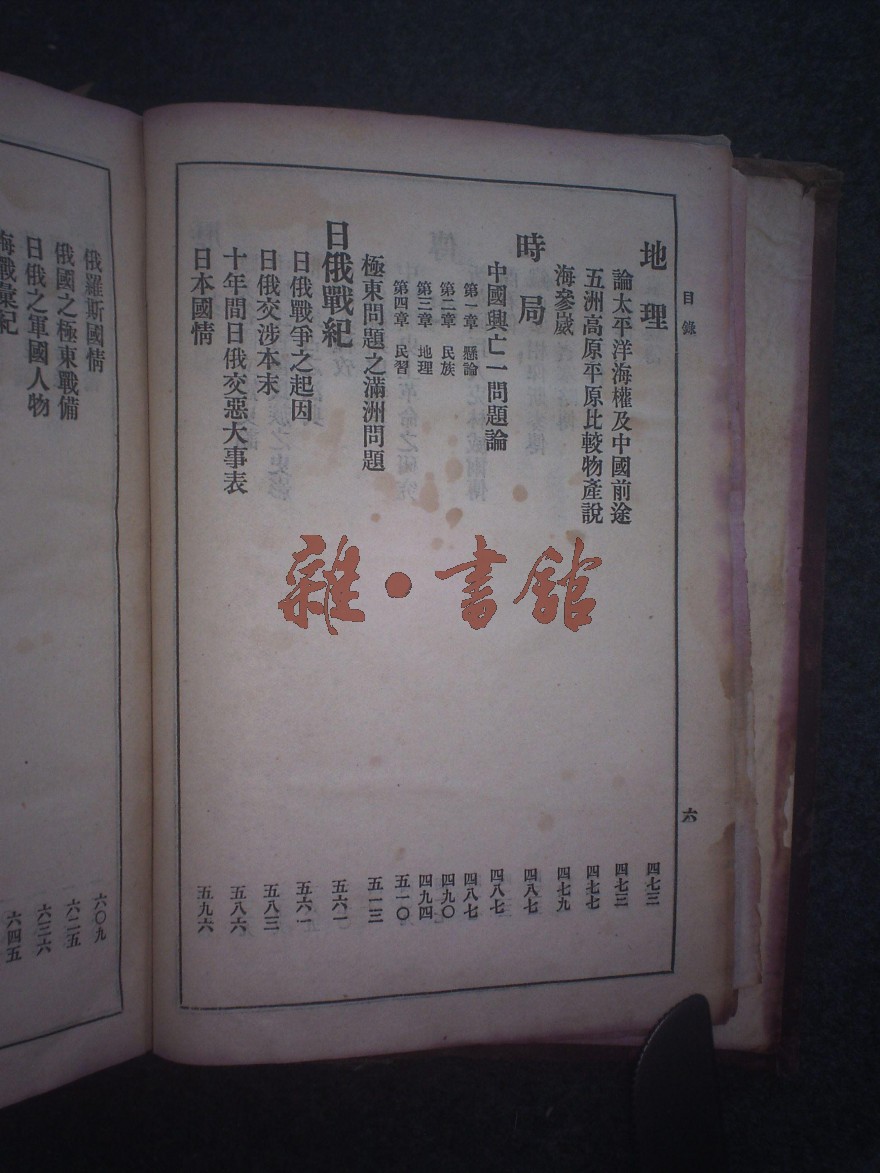 目錄
六
地理 四七三
論太平洋海權及中國前途 四七三
五洲高原平原比較物產說 四七七
海參崴 四七九
時局 四八七
中國興亡一問題論 四八七
第一章 懸論 四八七
第二章 民族 四九〇
第三章 地理 四九四
第四章 民習 五一〇
極東問題之滿洲問題 五一三
日俄戰紀 五六一
日俄戰爭之起因 五六一
日俄交涉本末 五八三
十年間日俄交惡大事表 五八六
日本國情 五九六
俄羅斯國情 六〇九
俄國之極東戰備 六二五
日俄之軍國人物 六三六
海戰彙紀 六四五
雜·書館